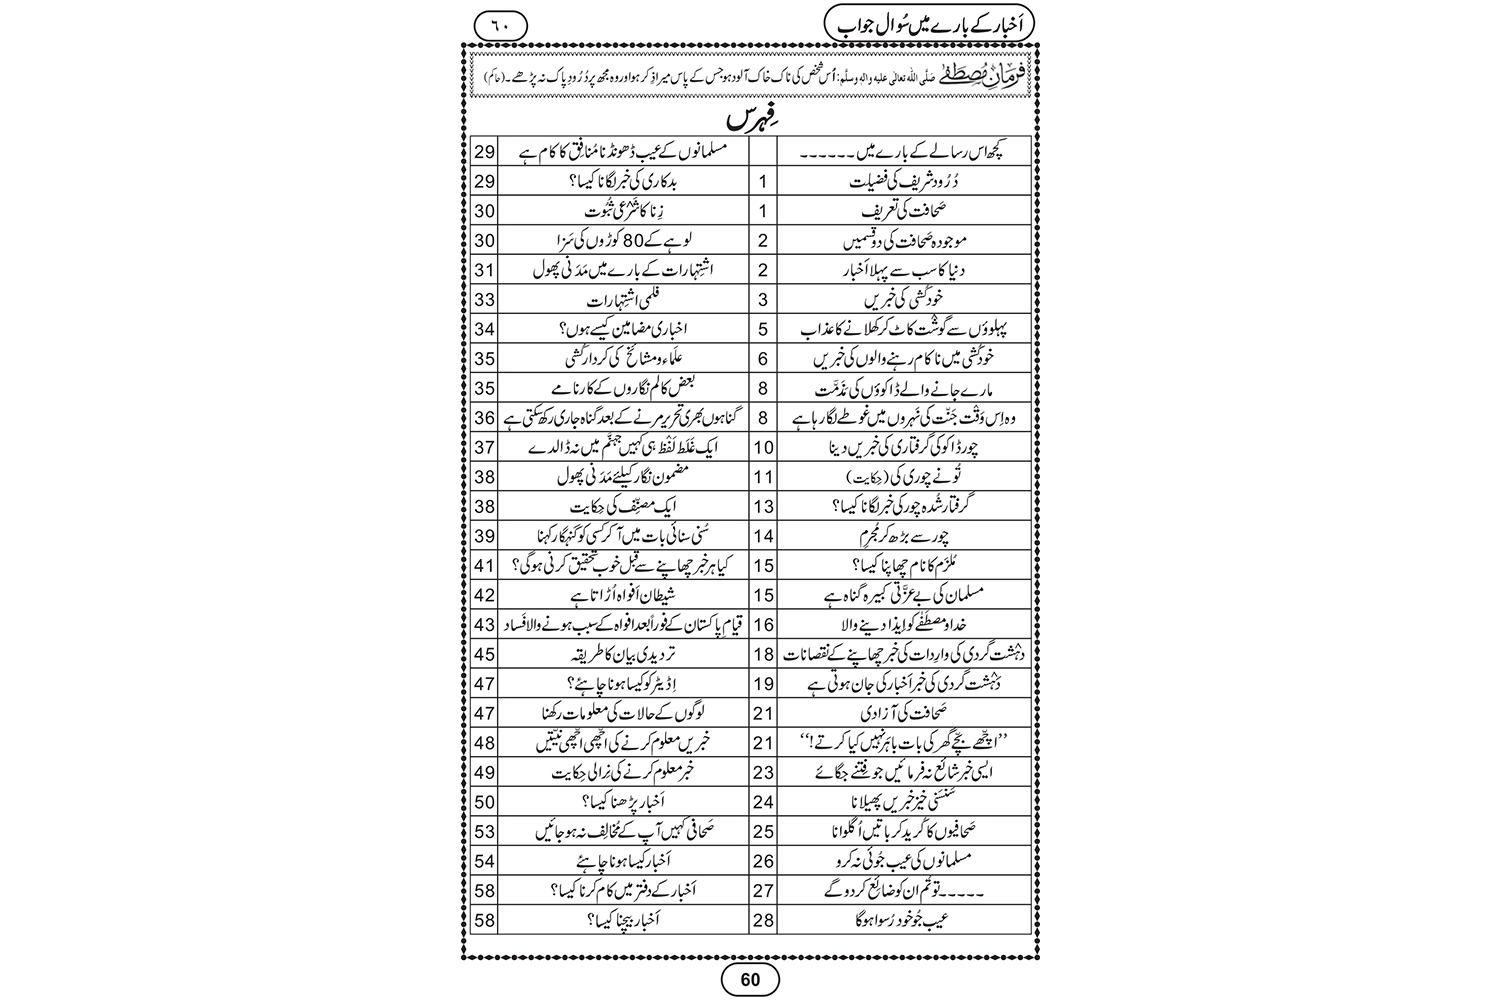 اَخبار کے بارے میں سُوال جواب
٦٠
فرمانِ مُصطَفٰے صَلَّی اللہ تعالٰی علیہ والہٖ وسلَّم: اُس شخص کی ناک خاک آلود ہو جس کے پاس میرا ذِکر ہو اور وہ مجھ پر دُرُودِ پاک نہ پڑھے۔ (حاکم)
فِہرس
کچھ اس رسالے کے بارے میں ۔۔۔۔۔۔ مسلمانوں کے عیب ڈھونڈنا مُنافِق کا کام ہے 29
دُرُود شریف کی فضیلت 1 بدکاری کی خبر لگانا کیسا؟ 29
صَحافت کی تعریف 1 زِنا کا شَرْعی ثُبُوت 30
موجودہ صَحافت کی دو قسمیں 2 لوہے کے 80 کوڑوں کی سَزا 30
دنیا کا سب سے پہلا اَخبار 2 اشتِہارات کے بارے میں مَدَنی پھول 31
خودکُشی کی خبریں 3 فلمی اشتِہارات 33
پہلوؤں سے گوشْت کاٹ کر کھلانے کا عذاب 5 اخباری مضامین کیسے ہوں؟ 34
خودکُشی میں ناکام رہنے والوں کی خبریں 6 عُلَماء و مشائخ کی کردار کُشی 35
مارے جانے والے ڈاکوؤں کی مَذَمَّت 8 بعض کالم نگاروں کے کارنامے 35
وہ اِس وَقْت جنّت کی نَہروں میں غوطے لگا رہا ہے 8 گناہوں بھری تحریر مرنے کے بعد گناہ جاری رکھ سکتی ہے 36
چور ڈاکو کی گرفتاری کی خبریں دینا 10 ایک غَلَط لَفْظ ہی کہیں جہنَّم میں نہ ڈالدے 37
تُونے چوری کی (حِکایت) 11 مضمون نگار کیلئے مَدَنی پھول 38
گرفتار شُدہ چور کی خبر لگانا کیسا؟ 13 ایک مصنِّف کی حِکایت 38
چور سے بڑھ کر مُجرِم 14 سُنی سنائی بات میں آ کر کسی کو گنہگار کہنا 39
مُلزَم کا نام چھاپنا کیسا؟ 15 کیا ہر خبر چھاپنے سے قبل خوب تحقیق کرنی ہوگی؟ 41
مسلمان کی بے عزَّتی کبیرہ گناہ ہے 15 شیطان اَفواہ اُڑاتا ہے 42
خدا و مصطَفٰے کو اِیذا دینے والا 16 قیامِ پاکستان کے فوراً بعد افواہ کے سبب ہونے والا فَساد 43
دَہشت گردی کی وارِدات کی خبر چھاپنے کے نقصانات 18 تردیدی بیان کا طریقہ 45
دَہشت گردی کی خبر اَخبار کی جان ہوتی ہے 19 اِڈیٹر کو کیسا ہونا چاہئے؟ 47
صَحافت کی آزادی 21 لوگوں کے حالات کی معلومات رکھنا 47
”اچّھے بچّے گھر کی بات باہَر نہیں کیا کرتے!“ 21 خبریں معلوم کرنے کی اچّھی اچّھی نیّتیں 48
ایسی خبر شائع نہ فرمائیں جو فِتنے جگائے 23 خبر معلوم کرنے کی نِرالی حِکایت 49
سَنسَنی خیز خبریں پھیلانا 24 اَخبار پڑھنا کیسا؟ 50
صَحافیوں کا کُرید کر باتیں اُگلوانا 25 صَحافی کہیں آپ کے مُخالِف نہ ہو جائیں 53
مسلمانوں کی عیب جُوئی نہ کرو 26 اَخبار کیسا ہونا چاہئے 54
۔۔۔۔۔ تو تُم ان کو ضائِع کر دو گے 27 اَخبار کے دفتر میں کام کرنا کیسا؟ 58
عیب جُو خود رُسوا ہوگا 28 اَخبار بیچنا کیسا؟ 58
60